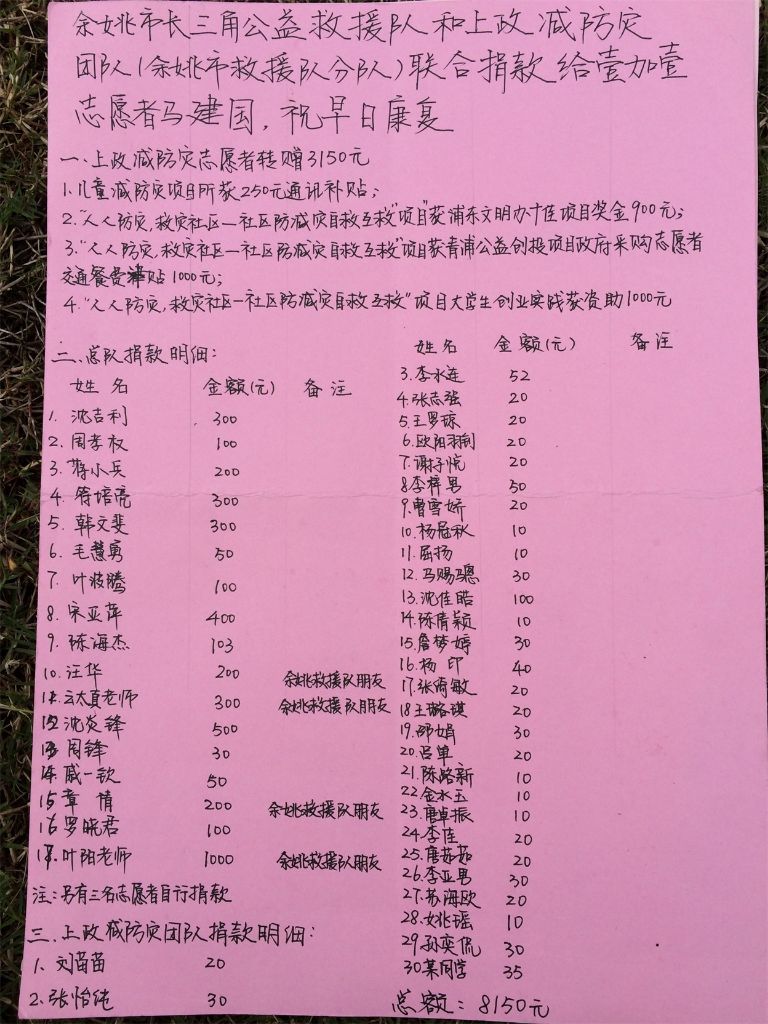 余姚市长三角公益救援队和上政减防灾
团队(余姚市救援队分队)联合捐款给壹加壹
志愿者马建国,祝早日康复
一、上政减防灾志愿者转赠3150元
1.儿童减防灾项目所获250元通讯补贴;
2.“人人防灾,救灾社区—社区防减灾自救互救”项目”获浦东文明办十佳项目奖金900元;
3.“人人防灾,救灾社区—社区防减灾自救互救”项目获青浦公益创投项目政府采购志愿者
交通餐费津贴1000元;
4.“人人防灾,救灾社区—社区防减灾自救互救”项目大学生创业实践获资助1000元
二、总队捐款明细:
姓名 金额(元) 备注
1. 沈吉利 300
2. 周孝权 100
3. 蒋小兵 200
4. 符培亮 300
5. 韩文斐 300
6. 毛慧勇 50
7. 叶枝腾 100
8. 宋亚萍 400
9. 陈海杰 103
10. 汪华 200 余姚救援队朋友
11. 云太真老师 300 余姚救援队朋友
12. 沈炎锋 500
13. 周锋 30
14. 戚一钦 50
15. 章情 200 余姚救援队朋友
16. 罗晓君 100
17. 叶阳老师 1000 余姚救援队朋友
注:另有三名志愿者自行捐款
三、上政减防灾团队捐款明细:
1. 刘苗苗 20
2. 张怡纯 30
姓名 金额(元) 备注
3. 李水连 52
4. 张志强 20
5. 王罗琼 20
6. 欧阳羽俐 20
7. 谢子悦 20
8. 李梓男 50
9. 曹雪娇 20
10. 杨冠秋 10
11. 屈扬 10
12. 马赐骢 30
13. 沈佳皓 100
14. 陈倩颖 10
15. 詹梦婷 30
16. 杨印 40
17. 张倚敏 20
18. 王璐瑛 20
19. 邵娟 30
20. 吕单 20
21. 陈路新 10
22. 金水玉 10
23. 唐卓振 10
24. 李佳 20
25. 唐茹茹 20
26. 李亚男 30
27. 苏海欧 20
28. 姚瑶 10
29. 孙奕侃 30
30. 某同学 35
总额:8150元